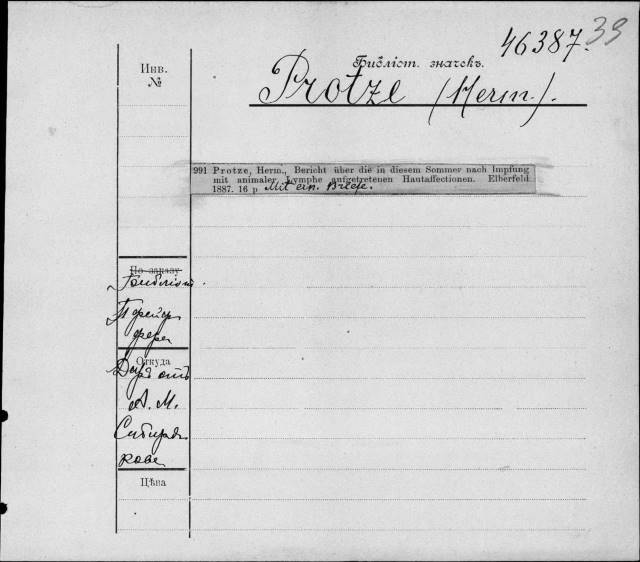 46387. 39
Инв. №
Библіот. значокъ.
Protze (Herm.).
991 Protze, Herm., Bericht über die in diesem Sommer nach Impfung
mit animaler Lymphe aufgetretenen Hautaffectionen. Elberfeld
1887. 16 p Mit ein. Briefe.
По заказу
Библіот.
Пфейф
фера
Откуда
Даръ отъ
А. М.
Сибиря
кова
Цѣна